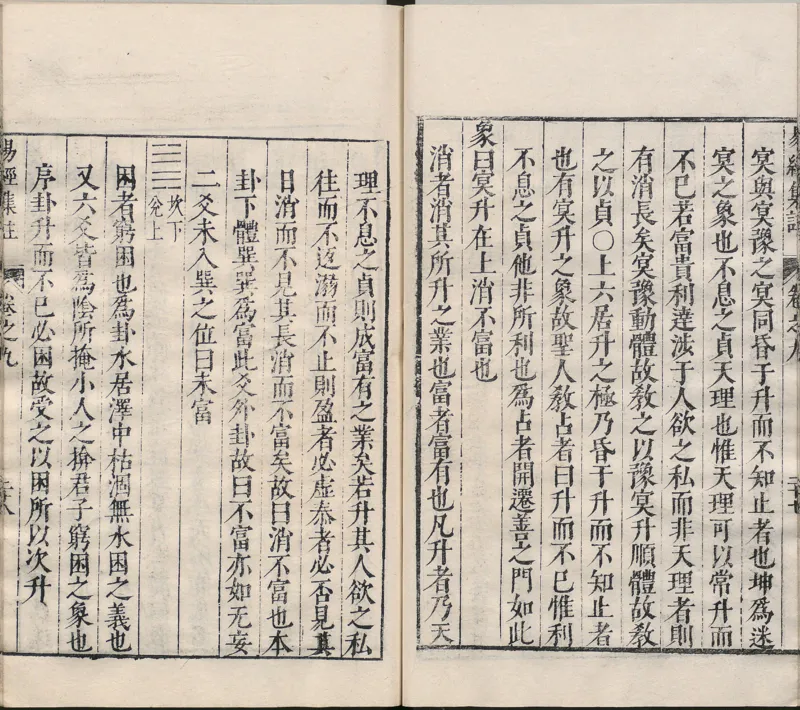 冥與冥豫之冥同昏于升而不知止者也坤爲迷
冥之象也不息之貞天理也惟天理可以常升而
不已若富貴利達涉于人欲之私而非天理者則
有消長矣冥豫動體故教之以豫冥升順體故教
之以貞〇上六居升之極乃昏于升而不知止者
也有冥升之象故聖人教占者曰升而不已惟利
不息之貞他非所利也爲占者開遷善之門如此
象曰冥升在上消不富也
消者消其所升之業也富者富有也凡升者乃天
理不息之貞則成富有之業矣若升其人欲之私
往而不返溺而不止則盈者必虛泰者必否見其
日消而不見其長消而不富矣故曰消不富也本
卦下體巽巽爲富此爻外卦故曰不富亦如无妄
二爻未入巽之位曰未富
坎下
兌上
困者窮困也爲卦水居澤中枯涸無水困之義也
又六爻皆爲陰所掩小人之揜君子窮困之象也
序卦升而不已必困故受之以困所以次升
易經集註 卷之九